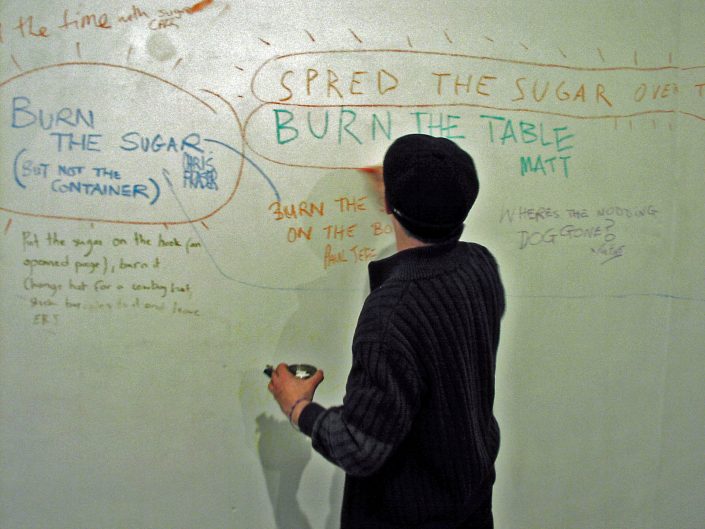 the time with sugar
SPRED THE SUGAR OVER T
BURN THE TABLE
MATT
BURN
THE SUGAR
(BUT NOT THE
CONTAINER)
CHRIS
FRASER
BURN THE S
ON THE BO
PAUL JEFF
WHERES THE NODDING
DOG GONE?
Put the sugar on the book (an
opened page), burn it
Change hat for a cowboy hat,
it and leave